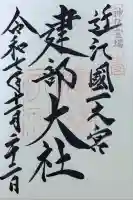 近江國一之宮
建部大社
令和七年十一月二十二日